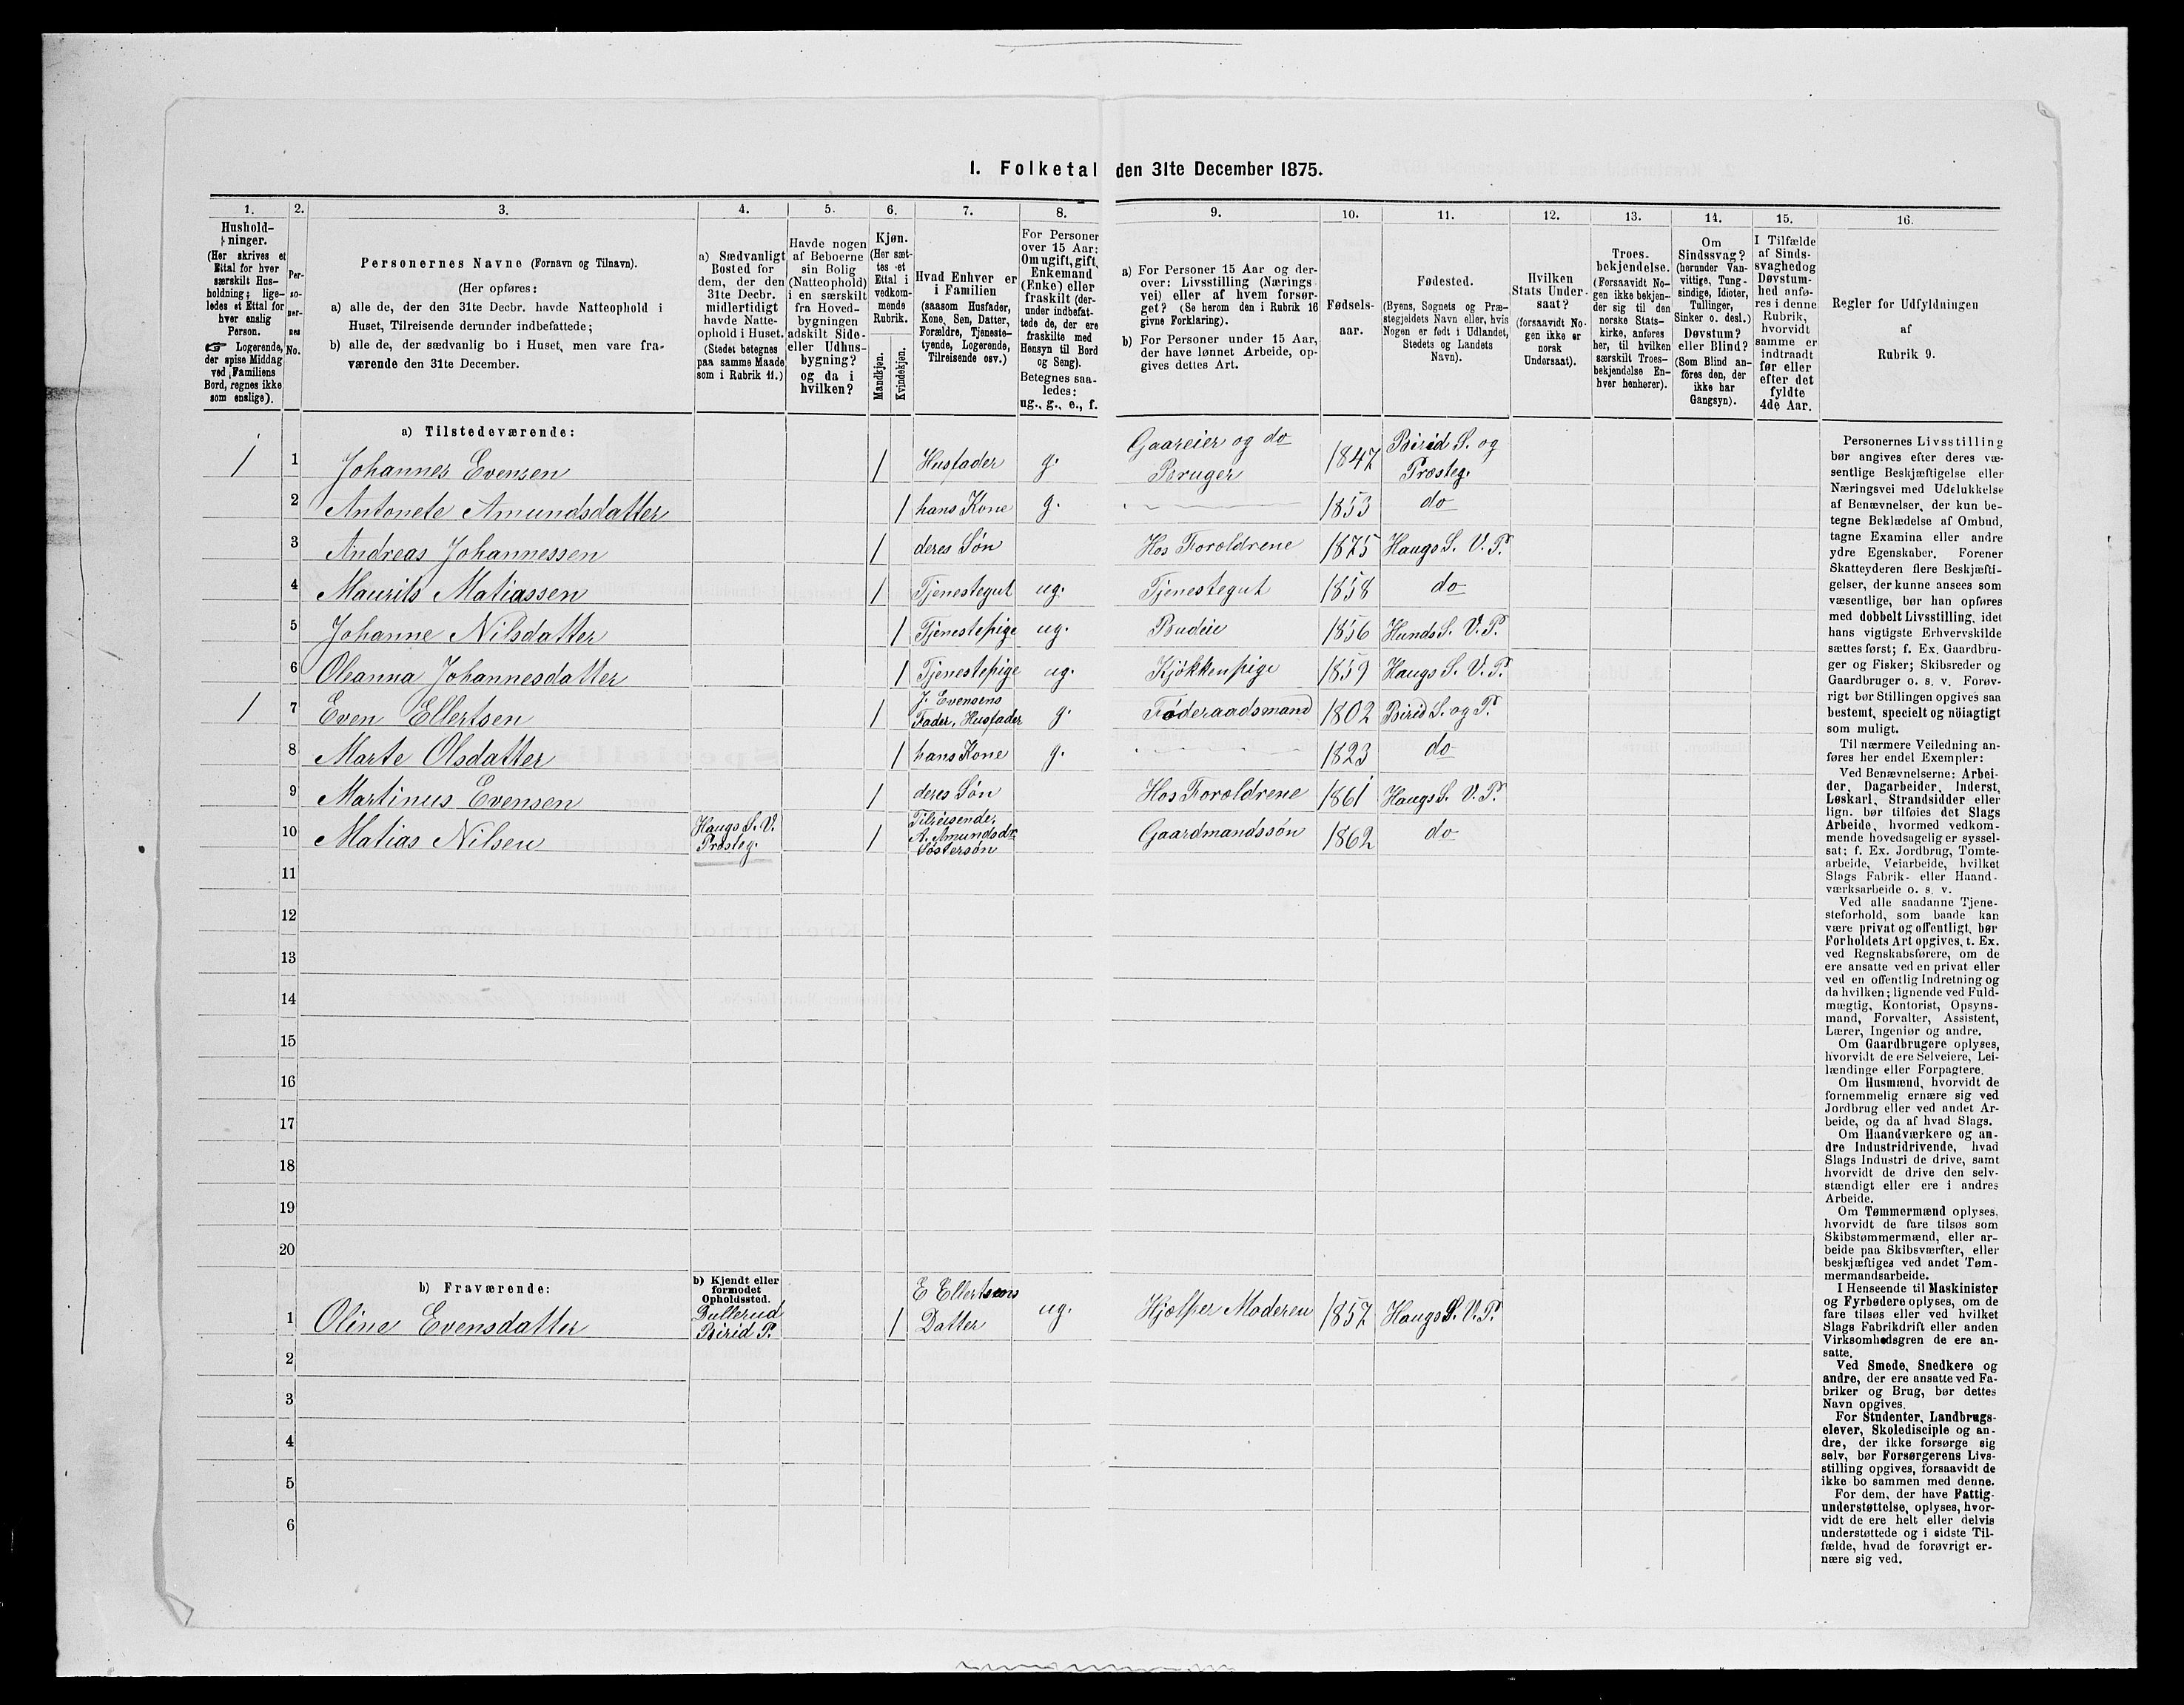 I. Folketal den 31te December 1875.
1.
Hushold-
ninger.
(Her skrives et
Ettal for hver
særskilt Hus-
holdning; lige-
ledes et Ettal for
hver enslig
Person.
☞ Logerende,
der spise Middag
ved Familiens
Bord, regnes ikke
som enslige).
2.
Per-
so-
ner-
nes
No.
3.
Personernes Navne (Fornavn og Tilnavn).
(Her opføres:
a) alle de, der den 31te Decbr. havde Natteophold i
Huset, Tilreisende derunder indbefattede;
b) alle de, der sædvanlig bo i Huset, men vare fra-
værende den 31te December.
4.
a) Sædvanligt
Bosted for
dem, der den
31te Decbr.
midlertidigt
havde Natte-
ophold i Huset.
(Stedet betegnes
paa samme Maade
som i Rubrik 11.)
5.
Havde nogen
af Beboerne
sin Bolig
(Natteophold)
i en særskilt
fra Hoved-
bygningen
adskilt Side-
eller Udhus-
bygning?
og da i
hvilken?
6.
Kjøn.
(Her sæt-
tes et
Ettal i
vedkom-
mende
Rubrik.
Mandkjøn.
Kvindekjøn.
7.
Hvad Enhver er
i Familien
(saasom Husfader,
Kone, Søn, Datter,
Forældre, Tjeneste-
tyende, Logerende,
Tilreisende osv.)
8.
For Personer
over 15 Aar:
Om ugift, gift,
Enkemand
(Enke) eller
fraskilt (der-
under indbefat-
tede de, der ere
fraskilte med
Hensyn til Bord
og Seng).
Betegnes saa-
ledes:
ug., g., e., f.
9.
a) For Personer 15 Aar og der-
over: Livsstilling (Nærings-
vei) eller af hvem forsør-
get? (Se herom den i Rubrik 16
givne Forklaring).
b) For Personer under 15 Aar,
der have lønnet Arbeide, op-
gives dettes Art.
10.
Fødsels-
aar.
11.
Fødested.
(Byens, Sognets og Præ-
stegjeldets Navn eller, hvis
Nogen er født i Udlandet,
Stedets og Landets
Navn).
12.
Hvilken
Stats Under-
saat?
(forsaavidt No-
gen ikke er
norsk
Undersaat).
13.
Troes-
bekjendelse.
(Forsaavidt No-
gen ikke bekjen-
der sig til den
norske Stats-
kirke, anføres
her, til hvilken
særskilt Troes-
bekjendelse En-
hver henhører).
14.
Om
Sindssvag?
(herunder Van-
vittige, Tung-
sindige, Idioter,
Tullinger,
Sinker o. desl.)
Døvstum?
eller Blind?
(Som Blind an-
føres den, der
ikke har
Gangsyn).
15.
I Tilfælde
af Sinds-
svaghed og
Døvstum-
hed anfø-
res i denne
Rubrik,
hvorvidt
samme er
indtraadt
før eller
efter det
fyldte
4de Aar.
16.
Regler for Udfyldningen
af
Rubrik 9.
a) Tilstedeværende:
1 1 Johannes Evensen 1 Husfader g. Gaareier og do Bruger 1847 Birid S. og Prosteg.
2 Antonete Amundsdatter 1 hans Kone g. 1853 do
3 Andreas Johannessen 1 deres Søn Hos Foroldrene 1875 Haugs S. V. P.
4 Maurits Matiassen 1 Tjenestegut ug. Tjenestegut 1858 do
5 Johanne Nilsdatter 1 Tjenestepige ug. Budeie 1856 Hunds S. V. P.
6 Oleanna Johannesdatter 1 Tjenestepige ug. Kjøkkenpige 1859 Haugs S. V. P.
1 7 Even Ellertsen 1 J. Evensens Fader, Husfader g. Føderaadsmand 1802 Birid S. og P.
8 Marte Olsdatter 1 hans Kone g. 1823 do
9 Martinus Evensen 1 deres Søn Hos Foroldrene 1861 Haugs S. V. P.
10 Matias Nilsen Haugs S. V. Prosteg. 1 Tilreisende, A. Amundsdr Søstersøn Gaardmandssøn 1862 do
11
12
13
14
15
16
17
18
19
20
b) Fraværende:
b) Kjendt eller
formodet
Opholdssted.
1 Oline Evensdatter Dullerud Birid P. 1 E Ellertsens Datter ug. Hjælper Moderen 1857 Haugs S. V. P.
2
3
4
5
6
Personernes Livsstilling
bør angives efter deres væ-
sentlige Beskjæftigelse eller
Næringsvei med Udelukkelse
af Benævnelser, der kun be-
tegne Beklædelse af Ombud,
tagne Examina eller andre
ydre Egenskaber. Forener
Skatteyderen flere Beskjæfti-
gelser, der kunne ansees som
væsentlige, bør han opføres
med dobbelt Livsstilling, idet
hans vigtigste Erhvervskilde
sættes først; f. Ex. Gaardbru-
ger og Fisker; Skibsreder og
Gaardbruger o. s. v. Forøv-
rigt bør Stillingen opgives saa
bestemt, specielt og nöiagtigt
som muligt.
Til nærmere Veiledning an-
føres her endel Exempler:
Ved Benævnelserne: Arbei-
der, Dagarbeider, Inderst,
Løskarl, Strandsidder eller
lign. bør tilføies det Slags
Arbeide, hvormed vedkom-
mende hovedsagelig er syssel-
sat; f. Ex. Jordbrug, Tomte-
arbeide, Veiarbeide, hvilket
Slags Fabrik- eller Haand-
værksarbeide o. s. v.
Ved alle saadanne Tjene-
steforhold, som baade kan
være privat og offentligt, bør
Forholdets Art opgives, t. Ex.
ved Regnskabsførere, om de
ere ansatte ved en privat eller
ved en offentlig Indretning og
da hvilken; lignende ved Fuld-
mægtig, Kontorist, Opsyns-
mand, Forvalter, Assistent,
Lærer, Ingeniør og andre.
Om Gaardbrugere oplyses,
hvorvidt de ere Selveiere, Lei-
lændinge eller Forpagtere.
Om Husmænd, hvorvidt de
fornemmelig ernære sig ved
Jordbrug eller ved andet Ar-
beide, og da af hvad Slags.
Om Haandværkere og an-
dre Industridrivende, hvad
Slags Industri de drive, samt
hvorvidt de drive den selv-
stændigt eller ere i andres
Arbeide.
Om Tømmermænd oplyses,
hvorvidt de fare tilsøs som
Skibstømmermænd, eller ar-
beide paa Skibsværfter, eller
beskjæftiges ved andet Tøm-
mermandsarbeide.
I Henseende til Maskinister
og Fyrbødere oplyses, om de
fare tilsøs eller ved hvilket
Slags Fabrikdrift eller anden
Virksomhedsgren de ere an-
satte.
Ved Smede, Snedkere og
andre, der ere ansatte ved Fa-
briker og Brug, bør dettes
Navn opgives.
For Studenter, Landbrugs-
elever, Skoledisciple og an-
dre, der ikke forsørge sig
selv, bør Forsørgerens Livs-
stilling opgives, forsaavidt de
ikke bo sammen med denne.
For dem, der have Fattig-
understøttelse, oplyses, hvor-
vidt de ere helt eller delvis
understøttede og i sidste Til-
fælde, hvad de forøvrigt er-
nære sig ved.